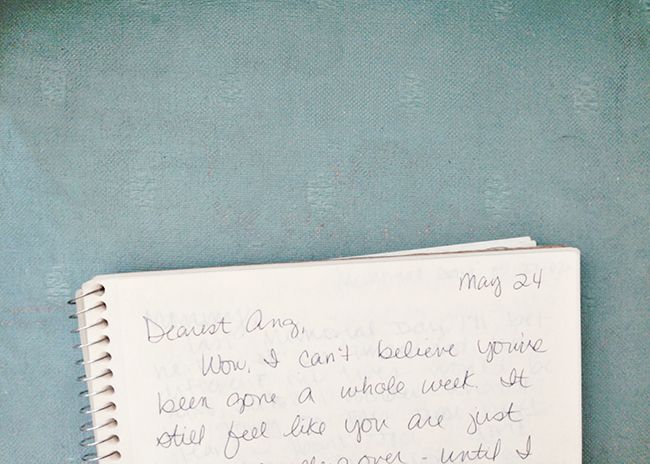 May 24
Dearest Ang,
Wow, I can't believe you've
been gone a whole week. It
still feel like you are just
over - until I